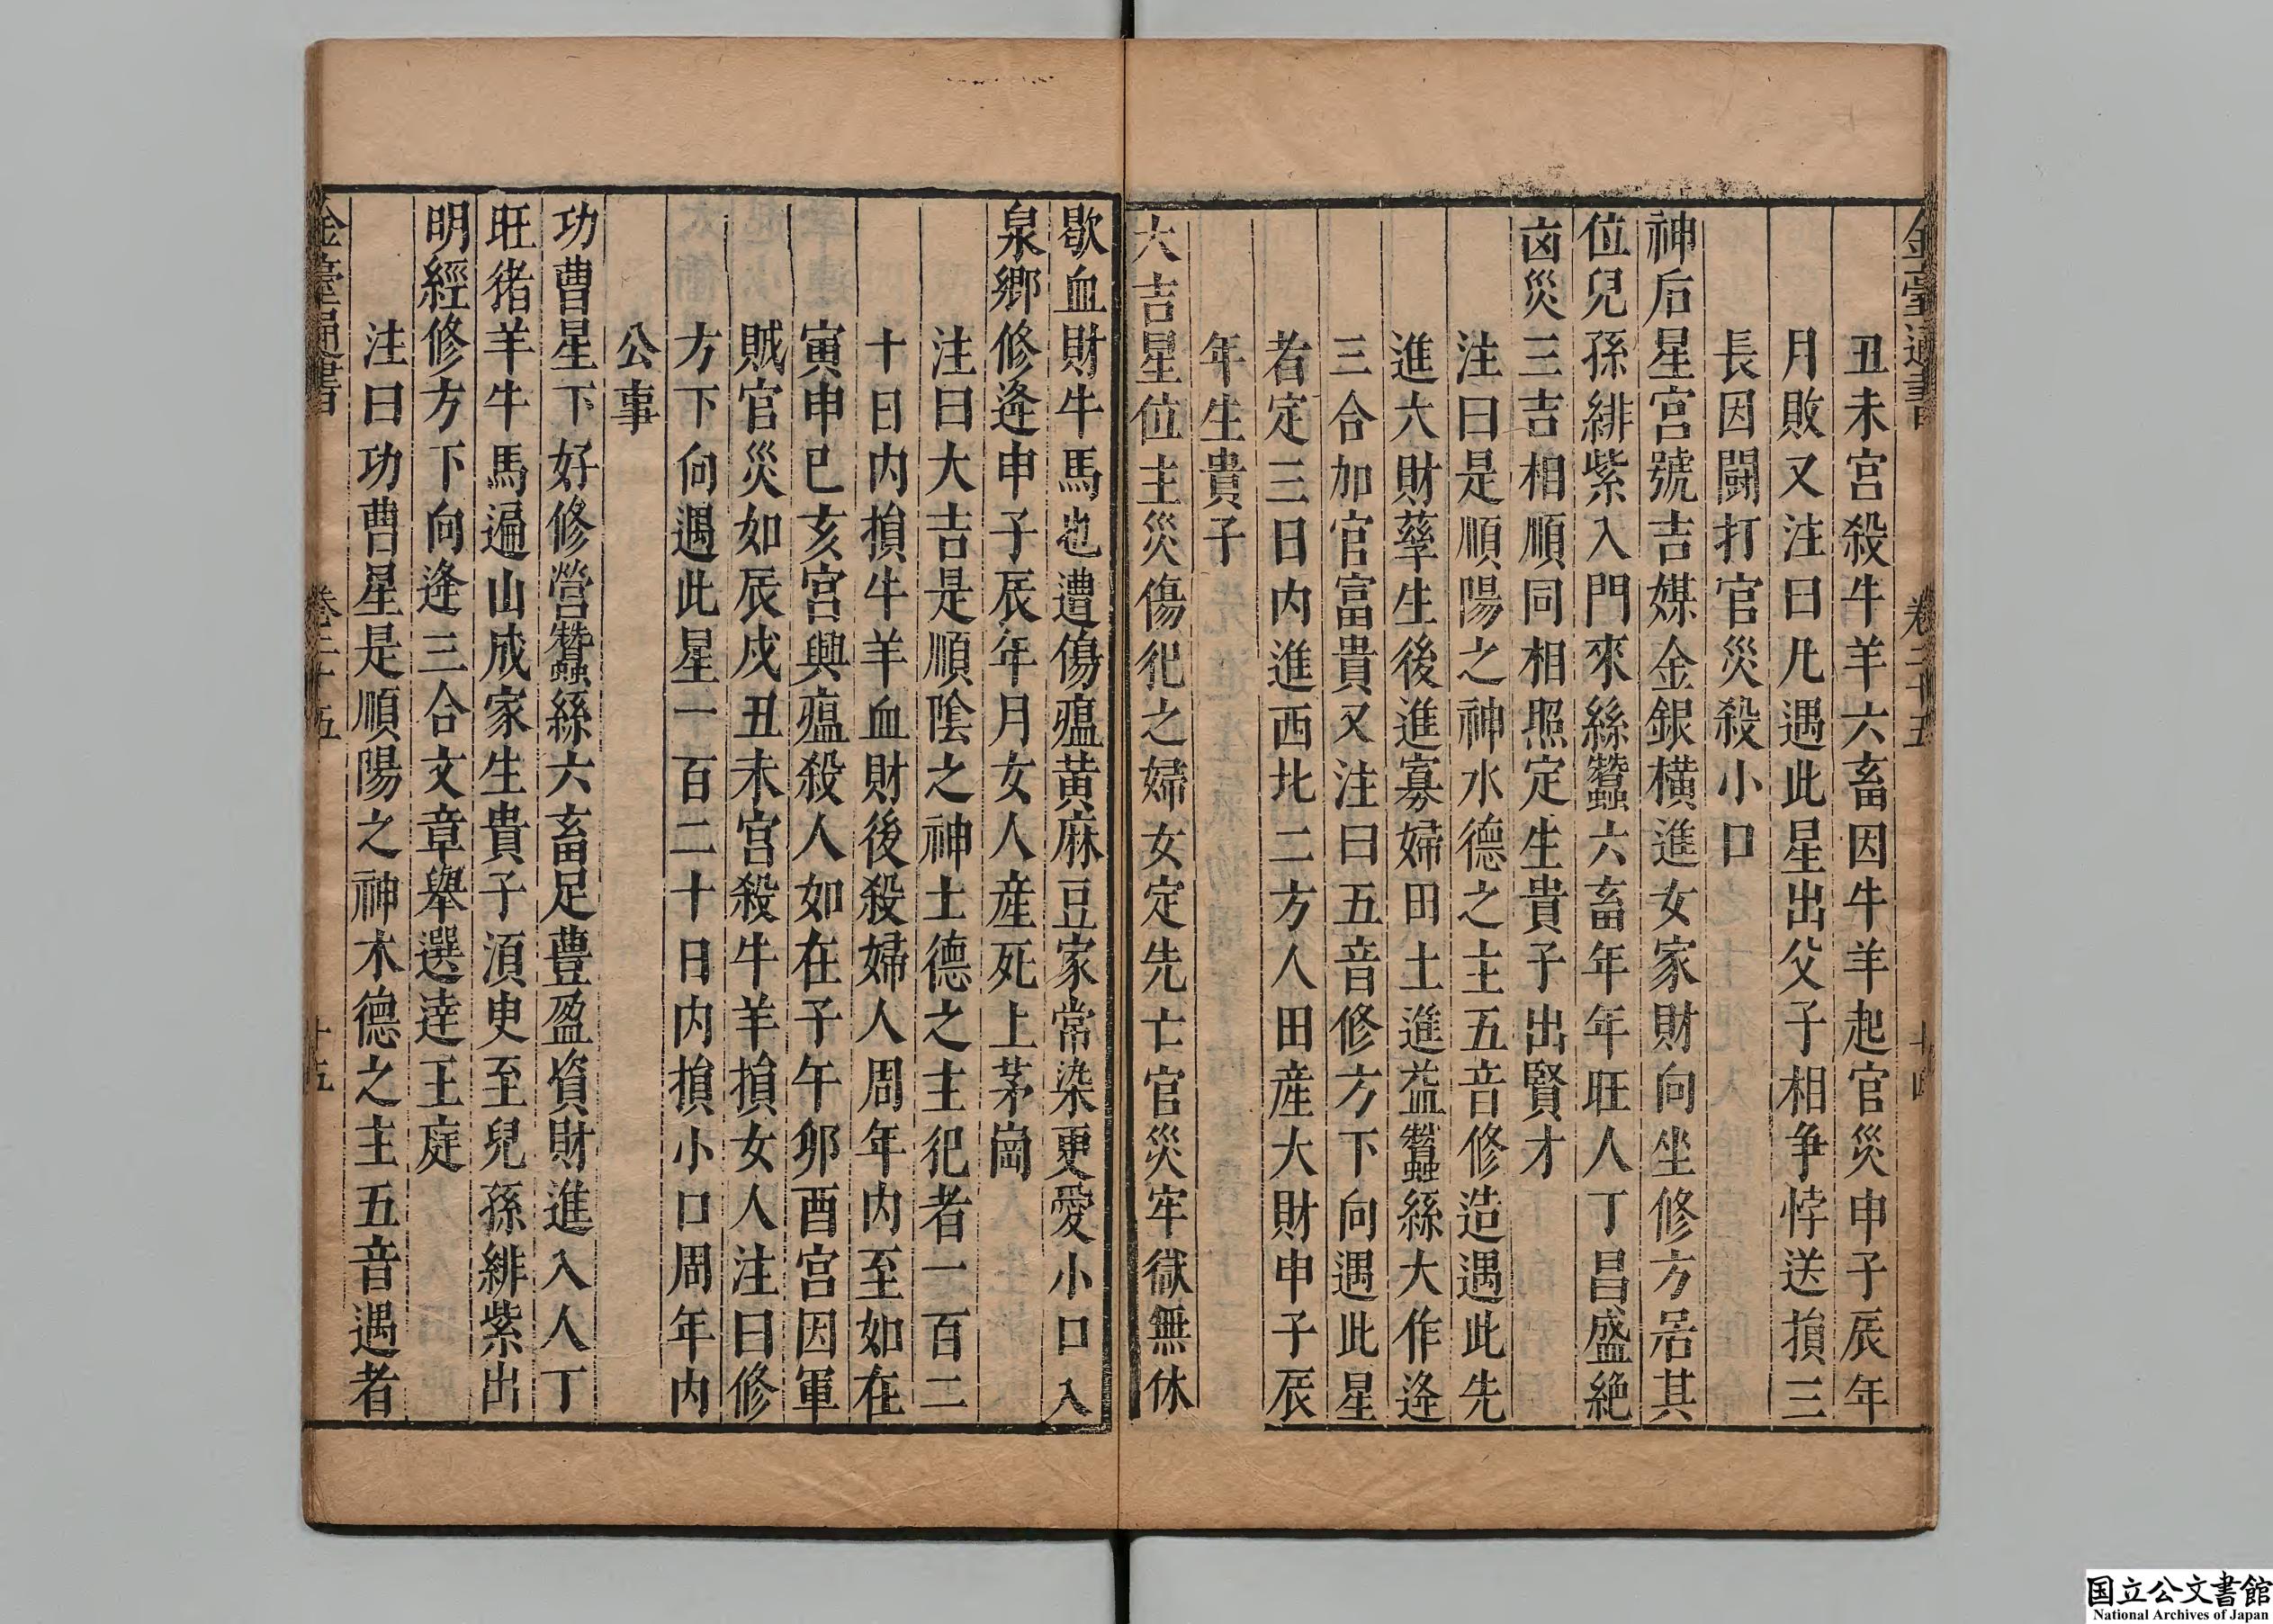 金臺通書 卷二十五 十四
丑未宮殺牛羊六畜因牛羊起官災申子辰年
月敗又注曰凡遇此星出父子相争悖送損三
長因鬪打官災殺小口
神后星宮號吉媒金銀橫進女家財向坐修方居其
位兒孫緋紫入門來絲蠶六畜年年旺人丁昌盛絶
凶災三吉相順同相照定生貴子出賢才
注曰是順陽之神水德之主五音修造遇此先
進大財孳生後進寡婦田土進益蠶絲大作逢
三合加官富貴又注曰五音修方下向遇此星
者定三日内進西北二方人田産大財申子辰
年生貴子
大吉星位主災傷犯之婦女定先亡官災牢獄無休
歇血財牛馬也遭傷瘟黄麻豆家常染更愛小口入
泉鄉修逢申子辰年月女人産死上茅崗
注曰大吉是順陰之神土德之主犯者一百二
十日内損牛羊血財後殺婦人周年内至如在
寅申巳亥宮興瘟殺人如在子午卯酉宮因軍
賊官災如辰戌丑未宮殺牛羊損女人注曰修
方下向遇此星一百二十日内損小口周年内
公事
功曹星下好修營蠶絲六畜足豊盈資財進入人丁
旺猪羊牛馬遍山成家生貴子須更至兒孫緋紫出
明經修方下向逢三合文章舉選達王庭
注曰功曹星是順陽之神木德之主五音遇者
金臺通書 卷二十五 十五
国立公文書館
National Archives of Japan